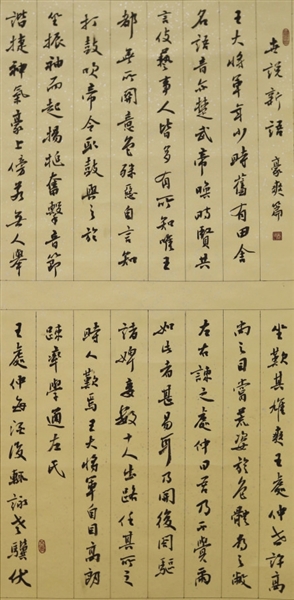 世說新語 豪爽篇
王大將軍年少時舊有田舍
名語音亦楚武帝喚時賢共
言伎藝事人皆多有所知唯王
都無所關意色殊惡自言知
打鼓吹帝令取鼓與之於
坐振袖而起揚槌奮擊音節
諧捷神氣豪上傍若無人舉
坐歎其雄爽王處仲世許高
尚之目嘗荒恣於色體為之敝
左右諫之處仲曰吾乃不覺爾
如此者甚易耳乃開後閤驅
諸婢妾數十人出路任其所之
時人歎焉王大將軍自目高朗
疎率學通左氏
王處仲每酒後輒詠老驥伏